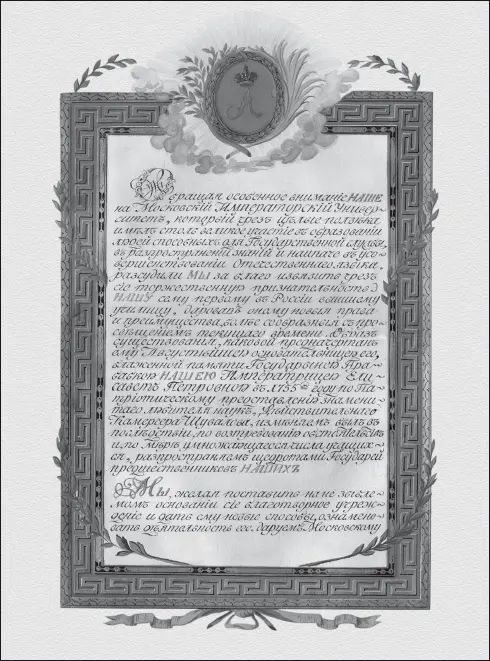 Обращая особенное вниманіе НАШЕ
на Московскій Императорскій Универ-
ситетъ, который чрезъ цѣлые полвѣка
имѣлъ столь великое участіе въ образованіи
людей способныхъ для Государственной службы,
въ распространеніи знаній и наипаче въ усо-
вершенствованіи Отечественнаго языка,
разсудили МЫ за благо изъявить чрезъ
сіе торжественную признательность
НАШУ сему первому въ Россіи вышнему
училищу, даровавъ оному новыя права
и преимущества, болѣе сообразныя съ про-
свѣщеніемъ текущаго времени. Образъ
существованія, каковой предначертанъ
ему Августѣйшею основательницею его,
блаженной памяти Государынею Пра-
бабкою НАШЕЮ Императрицею Ели-
саветъ Петровною въ 1755мъ году по Па-
тріотическому представленію знамени-
таго любителя наукъ, Дѣйствительнаго
Камергера Шувалова, измѣняемъ былъ въ
послѣдствіи, по востребованію обстоятельствъ
и по мѣрѣ умножающагося числа учащих-
ся, распространяемъ щедротами Государей
предшественниковъ НАШИХЪ.
МЫ, желая поставить на незыбле-
момъ основаніи сіе благотворное учреж-
деніе и дать ему новые способы, ознамено-
вать дѣятельность свою, даруемъ Московскому